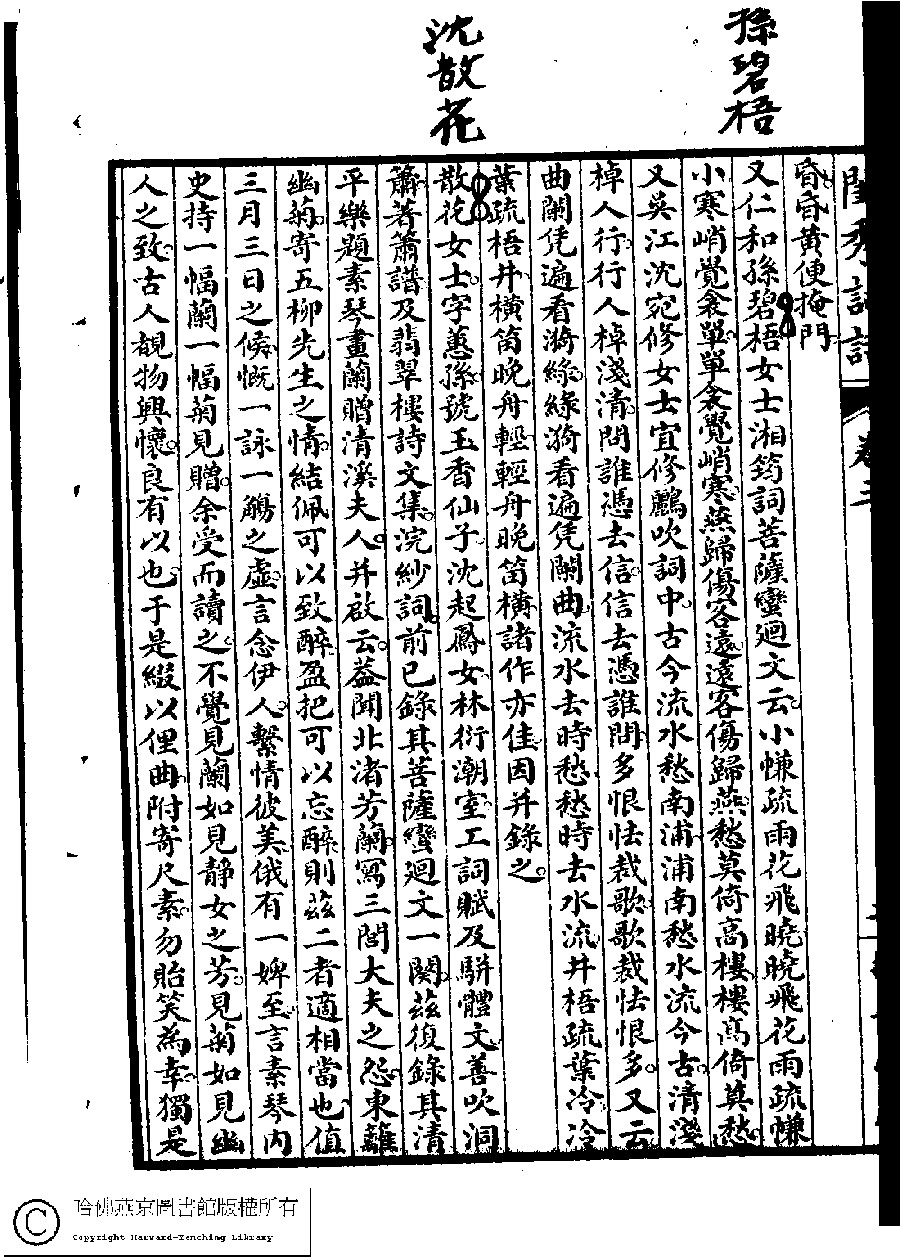 孫碧梧
沈散花
閨秀詞話
卷三
昏昏黃便掩門
又仁和孫碧梧女士湘筠詞菩薩蠻廻文云小㡘疏雨花飛曉曉飛花雨疏㡘
小寒峭覺衾單單衾覺峭寒燕歸傷客遠遠客傷歸燕愁莫倚高樓樓高倚莫愁
又吳江沈宛修女士宜修鸝吹詞中古今流水愁南浦浦南愁水流今古清淺
棹人行行人棹淺清問誰憑去信信去憑誰問多恨怯裁歌歌裁怯恨多又云
曲闌凭遍看漪綠綠漪看遍凭闌曲流水去時愁愁時去水流井梧疏葉冷冷
葉疏梧井橫笛晚舟輕輕舟晚笛橫諸作亦佳因并錄之
散花女士字蕙孫號玉香仙子沈起鳳女林衍潮室工詞賦及駢體文善吹洞
簫著簫譜及翡翠樓詩文集浣紗詞前已錄其菩薩蠻廻文一闋茲復錄其清
平樂題素琴畫蘭贈清溪夫人并啟云葢聞北渚芳蘭寫三閭大夫之怨東籬
幽菊寄五柳先生之情結佩可以致醉盈把可以忘醉則茲二者適相當也值
三月三日之候慨一詠一觴之虛言念伊人繫情彼美俄有一婢至言素琴內
史持一幅蘭一幅菊見贈余受而讀之不覺見蘭如見靜女之芳見菊如見幽
人之致古人覩物興懷良有以也于是綴以俚曲附寄尺素勿貽笑為幸獨是
哈佛燕京圖書館版權所有
Copyright Harvard-Yenching Library